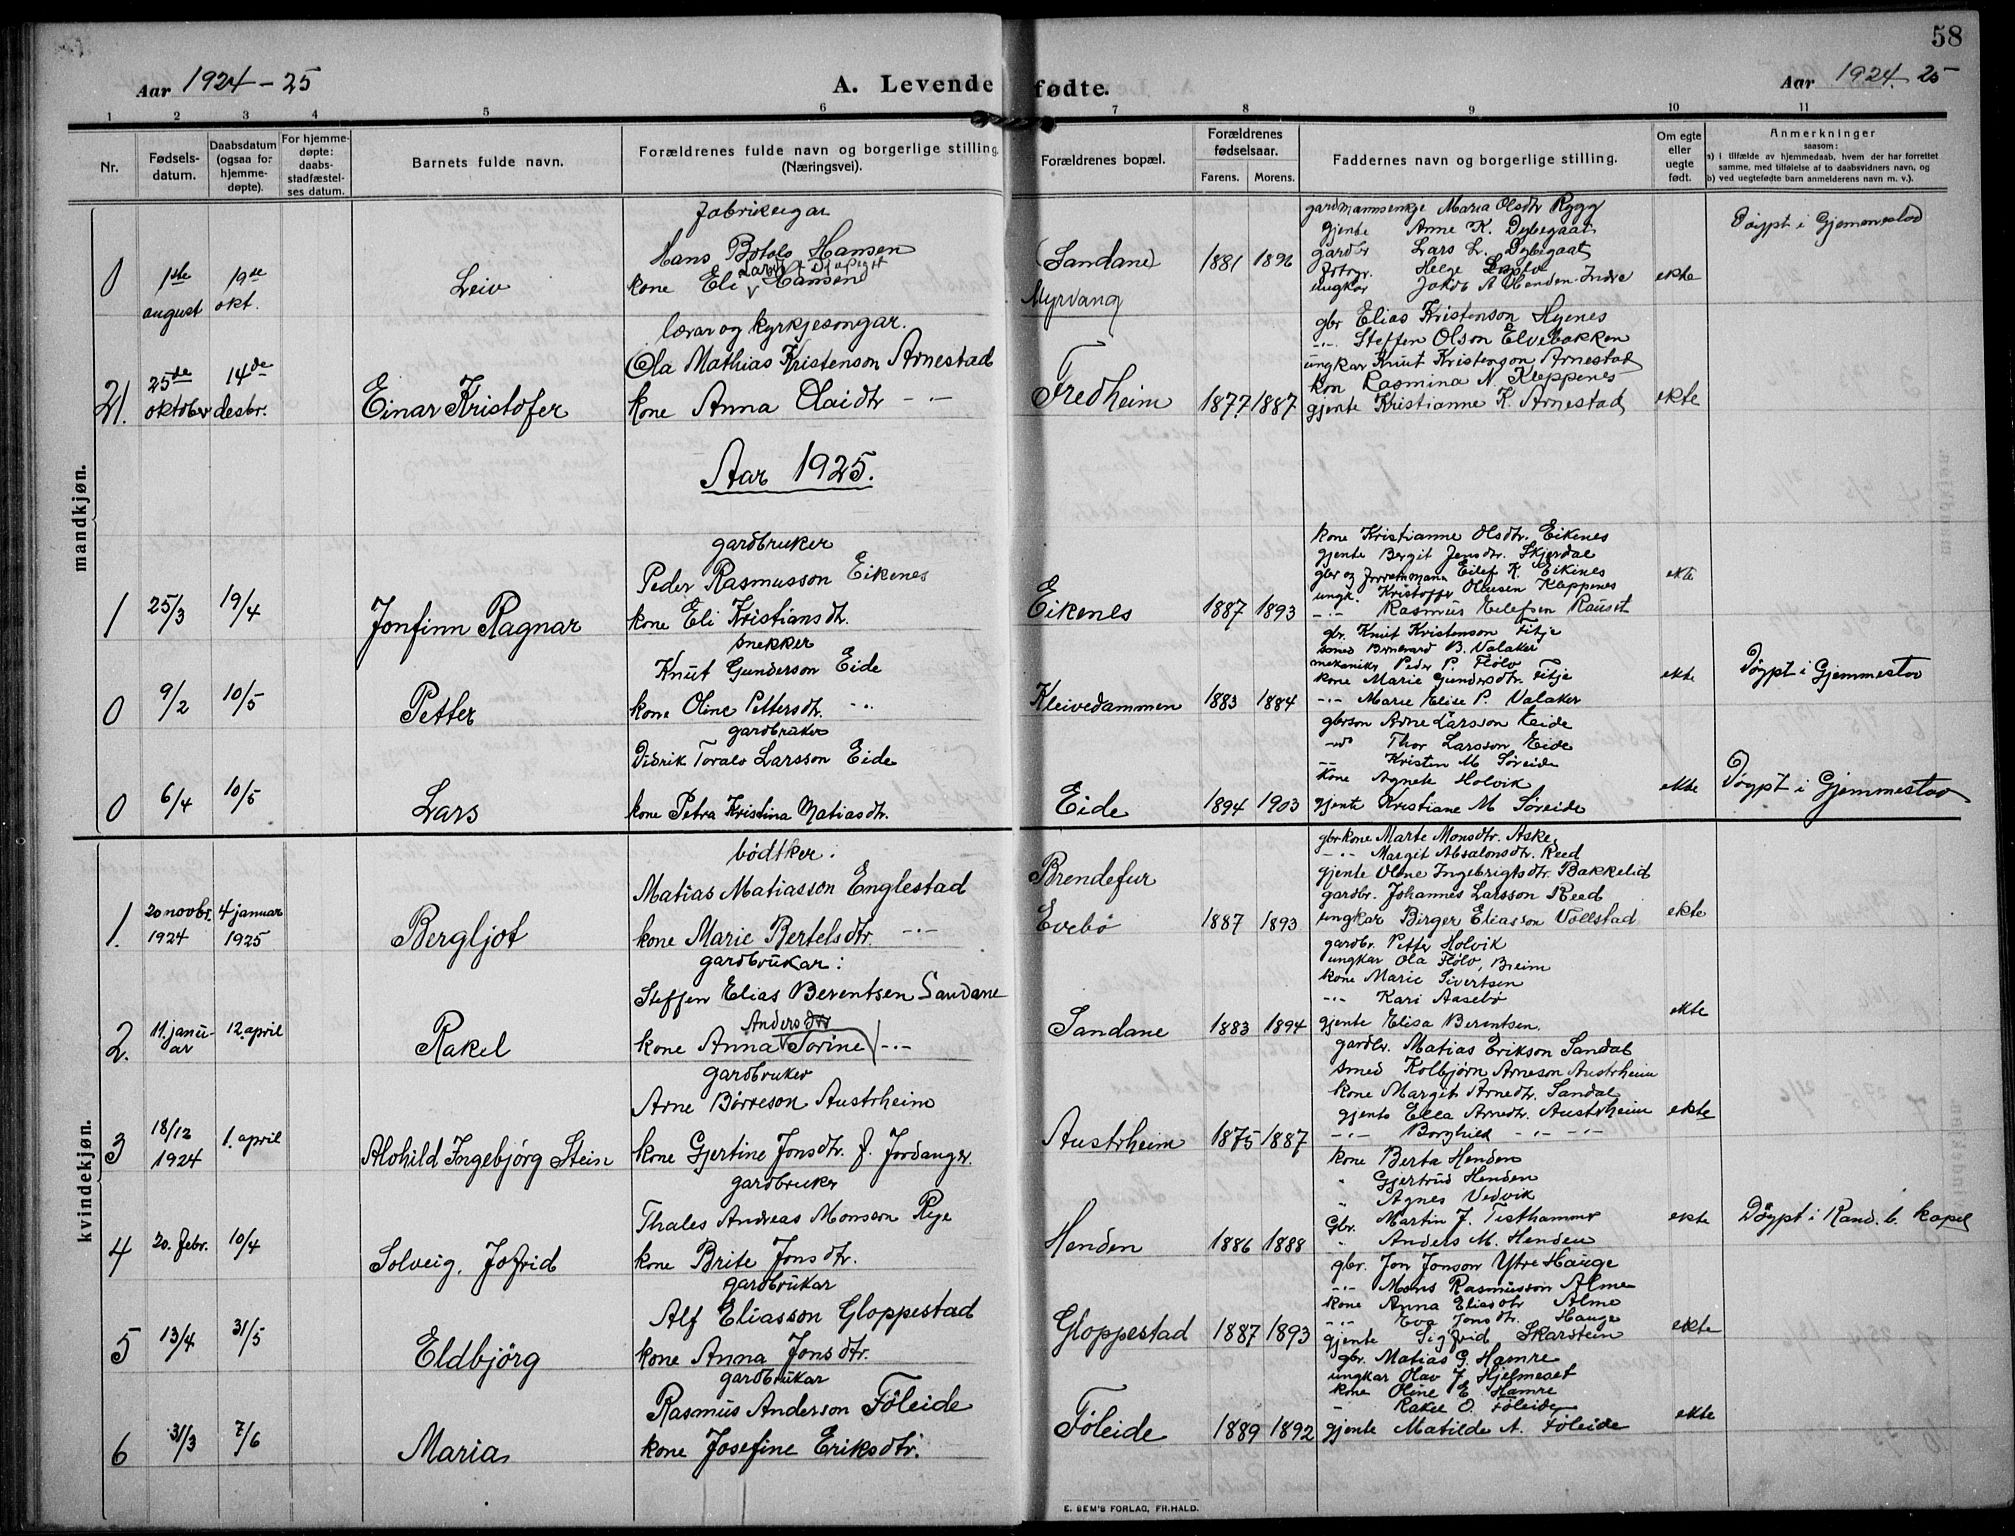 58
Aar 1924-25
A. Levende fødte.
Aar 1924. 25
1 2 3 4 5 6 7 8 9 10 11
Nr.
Fødsels-
datum.
Daabsdatum
(ogsaa for
hjemme-
døpte).
For hjemme-
døpte:
daabs-
stadfæstel-
ses datum.
Barnets fulde navn.
Forældrenes fulde navn og borgerlige stilling
(Næringsvei).
Forældrenes bopæl.
Forældrenes
fødselsaar.
Farens. Morens.
Faddernes navn og borgerlige stilling.
Om egte
eller
uegte
født.
Anmerkninger
saasom:
a) i tilfælde av hjemmedaab, hvem der har forrettet
samme, med tilføielse af to daabsvidners navn, og
b) ved uegtefødte barn anmelderens navn m. v.).
mandkjøn.
0
1ste
august
19de
okt.
Leiv
fabrikeigar
Hans Botolv Hansen
kone Eli Hansen
(Sandane)
Myrvang
1881 1896
gardmannsenkje Maria Olsdtr Rygg
gjente Anne K. Dybegaat
gardbr Lars L. Dybegaat
fotogr. Helge
ungkar Jakob A Henden-Indre
ekte
Døypt i Gjemmestad
21.
25de
oktober
14de
desbr.
Einar Kristofer
lærar og kyrkjesongar.
Ola Mathias Kristenson Arnestad
kone Anna Olaidtr -"-
Fredheim
1877. 1887
gbr Elias Kristenson Hyenes
-"- Steffen Olson Elvebakken
ungkar Knut Kristenson Arnestad
kon Rasmina N. Kleppenes
gjente Kristianne K. Arnestad
ekte
Aar 1925.
1
25/3
19/4
Jonfinn Ragnar
gardbruker
Peder Rasmusson Eikenes
kone Eli Kristiansdtr.
Eikenes
1887 1893
kone Kristianne Olsdtr. Eikenes
gjente Bergit Jensdtr. Skjerdal
gbr og Eilef K. Eikenes
ungk. Kristoffer Olausen Kleppenes
-"- Rasmus Eilefsen Rauset
ekte
0
9/2
10/5
Petter
snekker
Knut Gunderson Eide
kone Oline Pettersdtr. -"-
Kleivedammen
1883 1884
gbr. Knut Kristenson Fitje
smed B. Valaker
mekanikr Peder P. Flølo
kone Marie Gundersdtr. Fitje
-"- Marie Elise P. Valaker
ekte
Døypt i Gjemmestad
0
6/4
10/5
Lars
gardbruker
Didrik Toralv Larsson Eide
kone Petra Kristina Matiasdtr.
Eide
1894 1903
gbrson Arne Larsson Eide
-"- Thor Larsson Eide
-"- Kristen M Søreide
kone Agnete Holvik
gjente Kristiane M Søreide
ekte
Døypt i Gjemmestad
kvindekjøn.
1.
20 novbr.
1924
4 januar
1925
Bergljot
bødtker.
Matias Matiasson Englestad
kone Marie Bertelsdtr. -"-
Brendefur
Evebø
1887 1893
gbrkone Marte Monsdtr. Aske
-"- Margit Absalonsdtr. Reed
gjente Oline Ingebrigtsdtr. Bakkelid
gardbr. Johannes Larsson Reed
ungkar Birger Eliasson Vollstad
ekte
2.
11. janu-
ar
12. april
Rakel
gardbrukar:
Steffen Elias Berentsen Sandane
Andersdtr
kone Anna Sorine -"-
Sandane
1883 1894
gardbr. Petter Holvik
ungkar Ola Flølo, Breim
kone Marie Sivertsen
-"- Kari Aasebø
gjente Elisa Berentsen.
ekte
3
18/12
1924
1. april
Alvhild Ingebjørg Stein
gardbruker
Arne Børreson Austrheim
kone Gjertine Jonsdtr. f. Jordanger.
Austrheim
1875 1887
gardbr. Matias Erikson Sandal
smed Kolbjørn Arneson Austrheim
kone Margit Arnedtr. Sandal
gjente Ella Arnedtr. Austrheim
-"- Borghild -"- -"-
ekte
4
20. febr.
10/4
Solveig, Jofrid
gardbruker
Thales Andreas Monsson Rye
kone Brite Jonsdtr.
Henden
1886 1888
kone Berta Henden
" Gjertrud Henden
" Agnes Vedvik
Gbr. Martin J. Tisthammer
" Anders M. Henden
ekte
Døypt i Rand. b. kapel
5
13/4
31/5
Eldbjørg
gardbrukar
Alf Eliasson Gloppestad
kone Anna Jonsdtr.
Gloppestad
1887 1893
gbr. Jon Jonson Ytre Hauge
-"- Mons Rasmusson Alme
kone Anna Eliasdtr Alme
-"- Eva Jonsdtr. Hauge
gjente Sigfrid Skarstein
ekte
6
31/3
7/6
Maria
gardbrukar
Rasmus Anderson Føleide
kone Josefine Eriksdtr.
Føleide
1889 1892
gbr. Matias G. Hamre
ungkar Olav J. Hjelmeset
kone Oline E. Hamre
" Rakel O. Føleide
gjente Matilde A. Føleide
ekte
E. SEM'S FORLAG, FR.HALD.